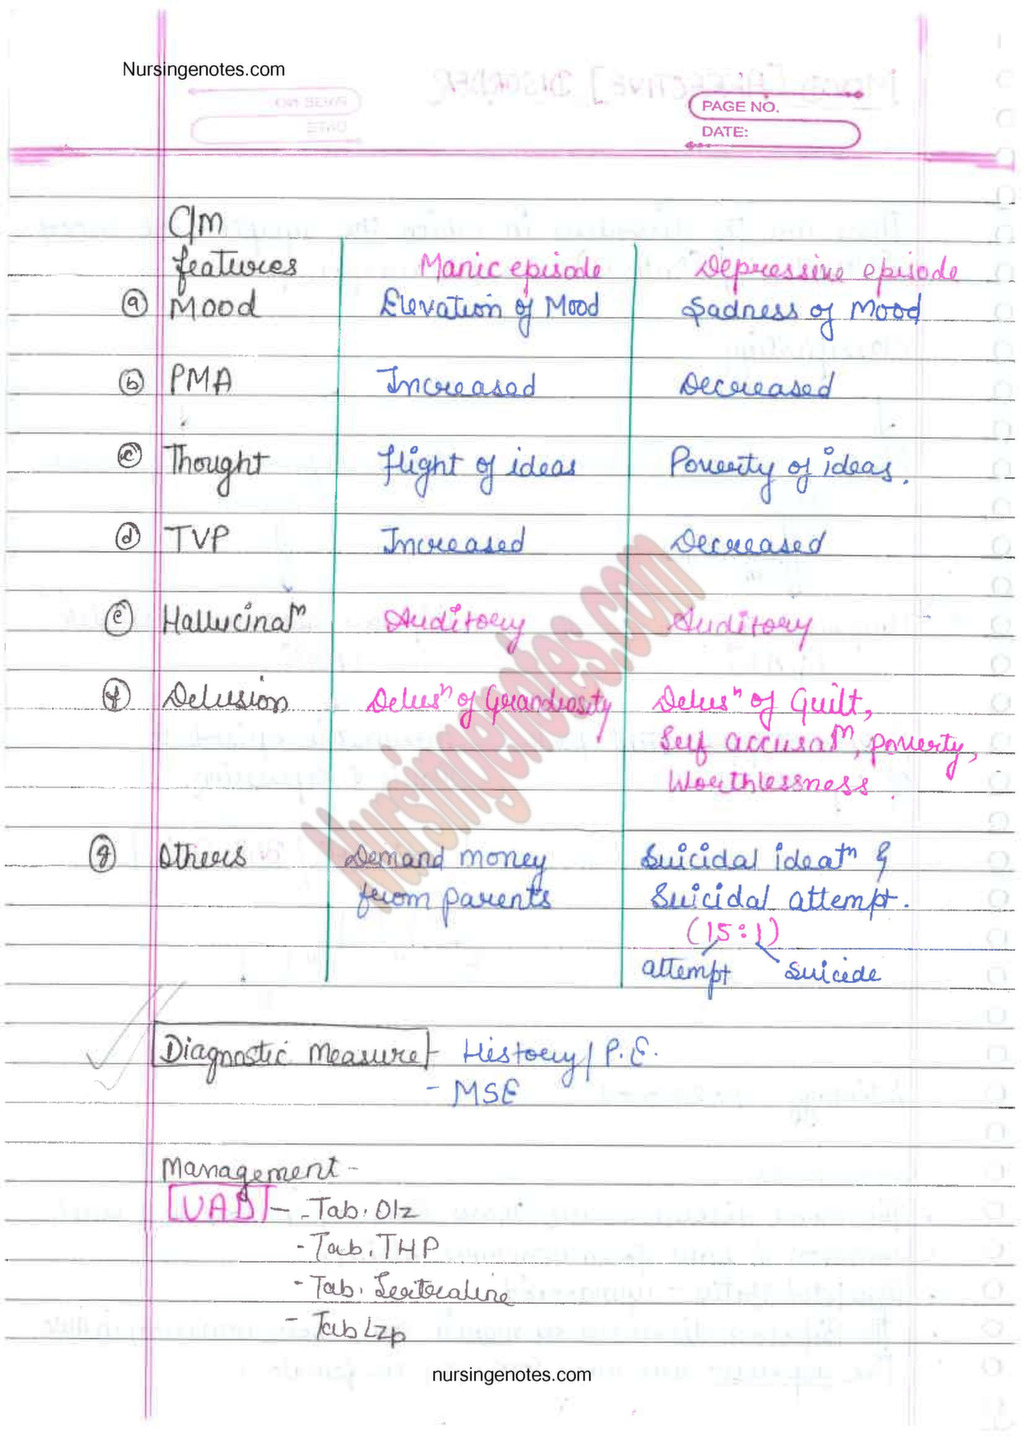 Nursingenotes.com
PAGE NO.
DATE:
C/m
features Manic episode Depressive episode
(a) Mood Elevation of Mood Sadness of Mood
(b) PMA Increased Decreased
(c) Thought flight of ideas Poverty of ideas.
(d) TVP Increased Decreased
(e) Hallucinaᵗⁿ Auditory Auditory
(f) Delusion Delusⁿ of Grandiosity Delusⁿ of Guilt,
Self accusaᵗⁿ, poverty,
Worthlessness.
(g) Others Demand money Suicidal ideatⁿ &
from parents Suicidal attempt.
(15:1)
attempt suicide
Diagnostic Measure - History/P.E.
- MSE
Management -
UAD - - Tab. Olz
- Tab. THP
- Tab. Sertraline
- Tab Lzp
Nursingenotes.com
nursingenotes.com